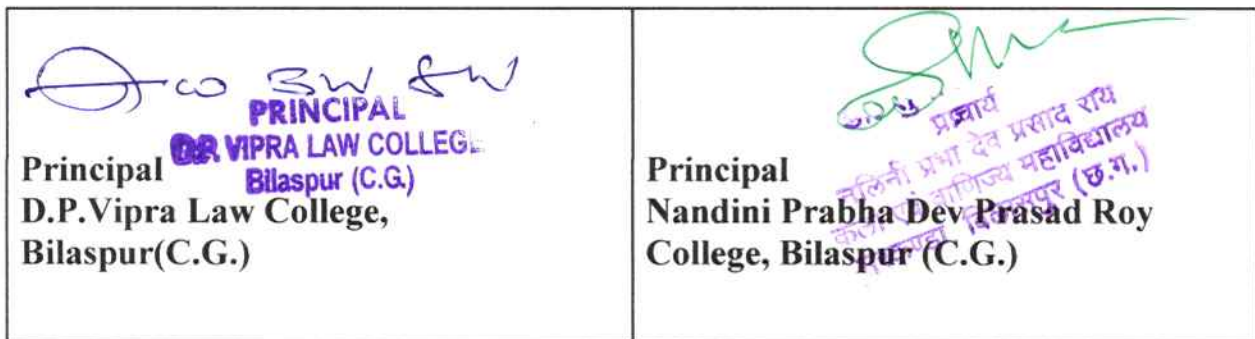 PRINCIPAL
D.P. VIPRA LAW COLLEGE
Bilaspur (C.G.)
Principal
D.P.Vipra Law College,
Bilaspur(C.G.)
प्राचार्य
नलिनी प्रभा देव प्रसाद राय
कला एवं वाणिज्य महाविद्यालय
बिलासपुर (छ.ग.)
Principal
Nandini Prabha Dev Prasad Roy
College, Bilaspur (C.G.)